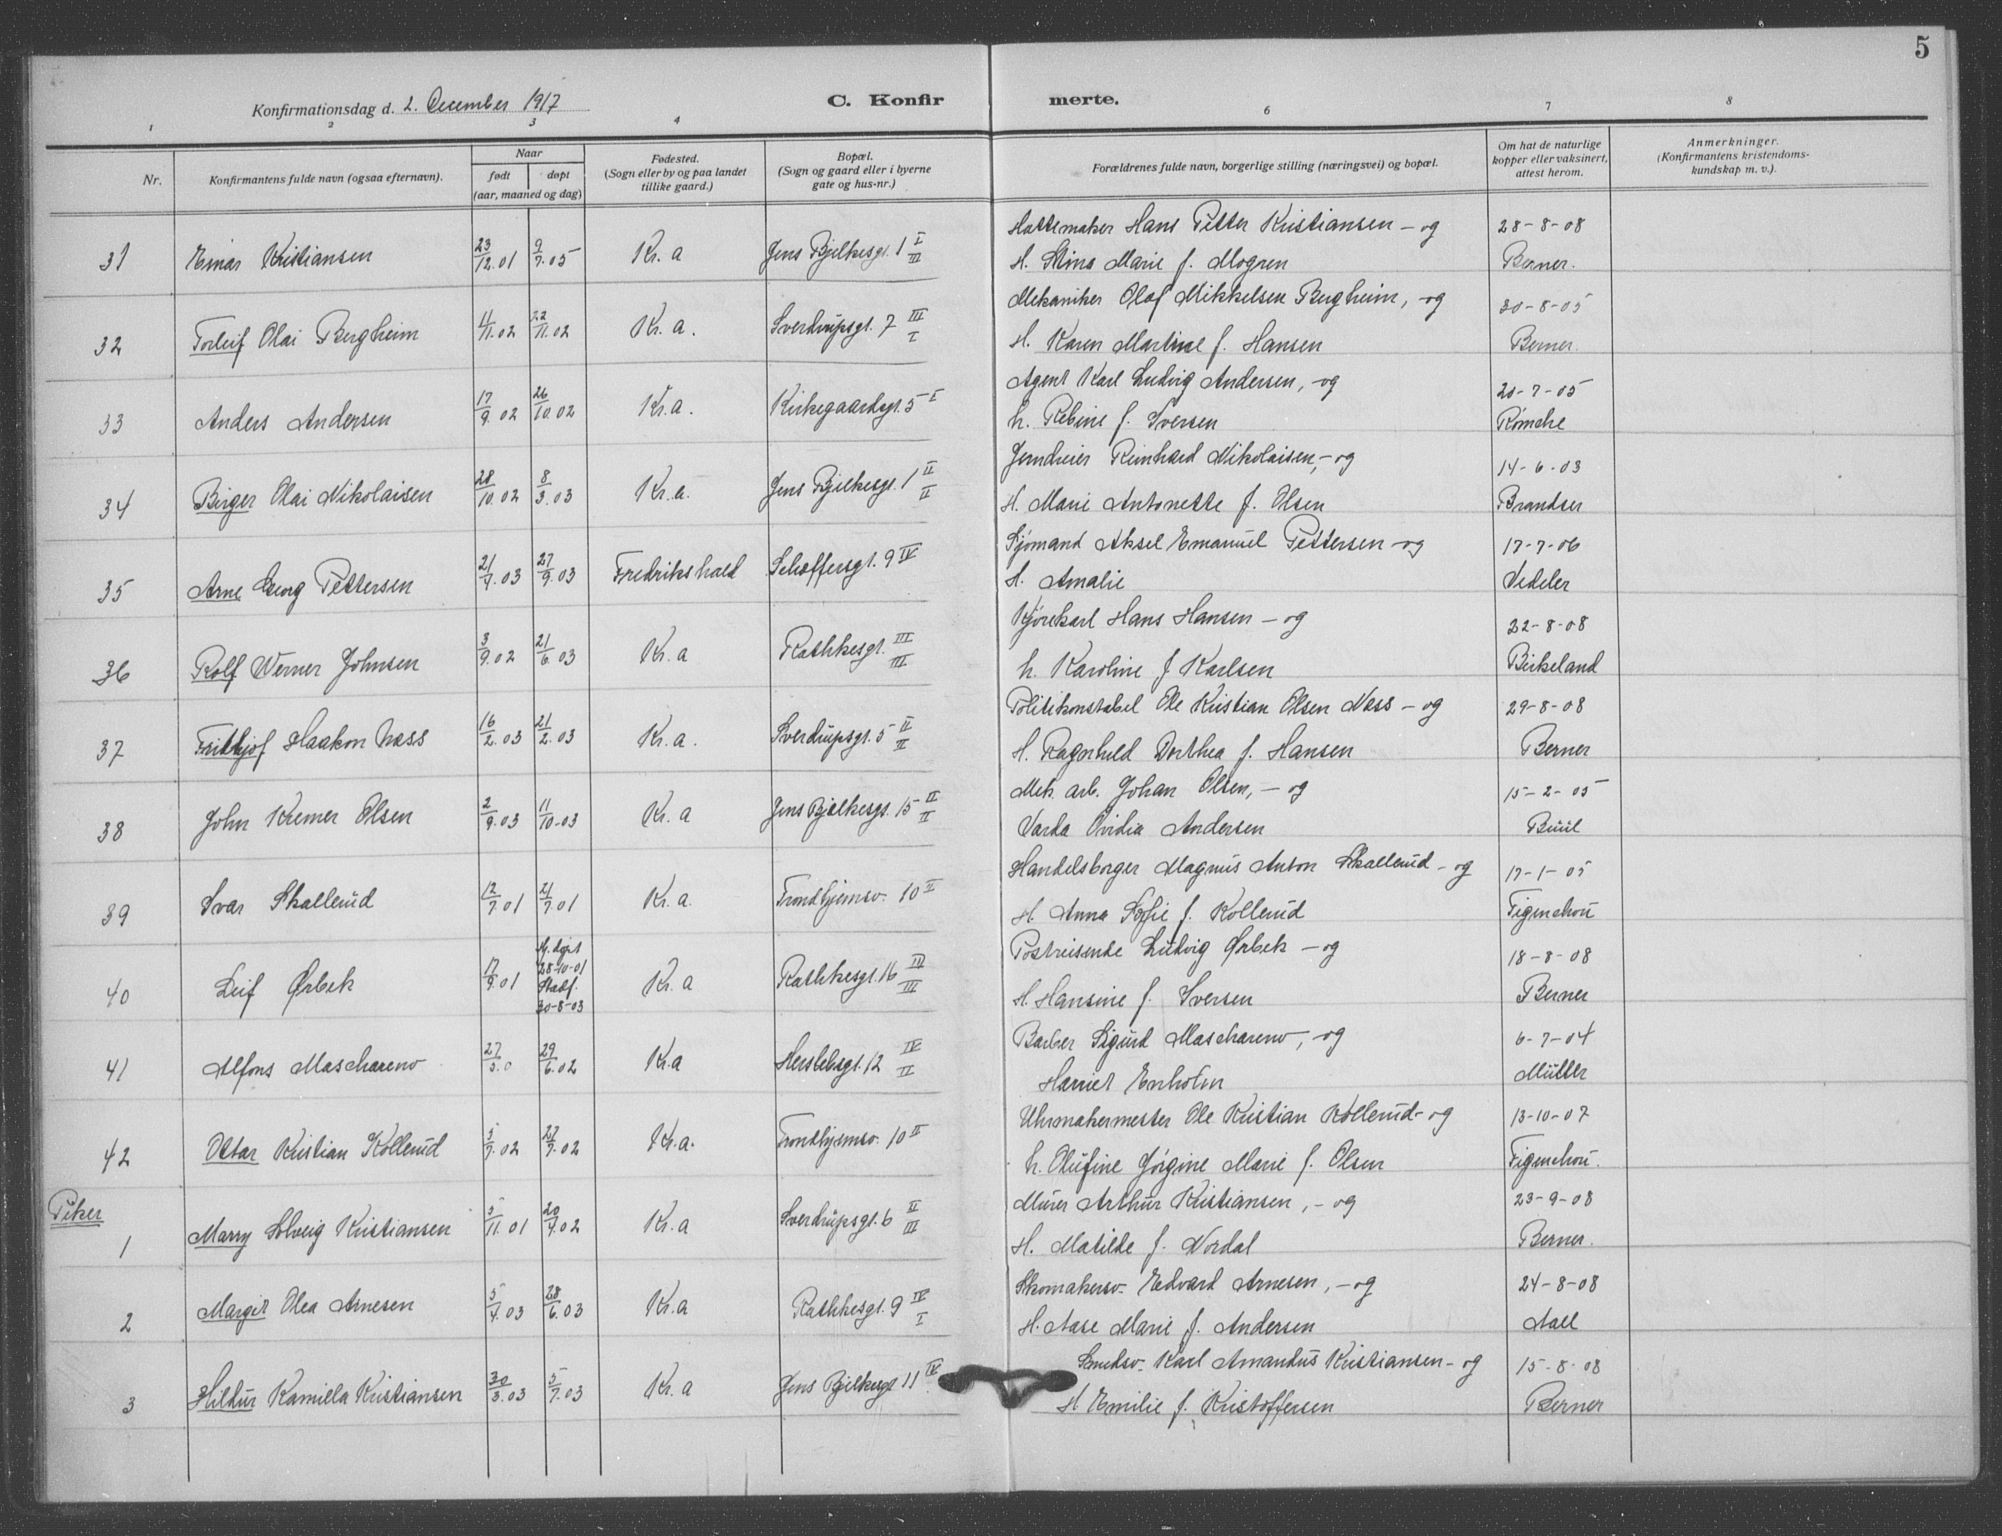 5
Konfirmationsdag d. 2. December 1917
C. Konfirmerte.
1 2 3 4 6 7 8
Nr.
Konfirmantens fulde navn (ogsaa efternavn).
Naar
født døpt
(aar, maaned og dag)
Fødested.
(Sogn eller by og paa landet
tillike gaard.)
Bopæl.
(Sogn og gaard eller i byerne
gate og hus-nr.)
Forældrenes fulde navn, borgerlige stilling (næringsvei) og bopæl.
Om hat de naturlige
kopper eller vaksinert,
attest herom.
Anmerkninger.
(Konfirmantens kristendoms-
kundskap m. v.).
Hattemaker Hans Petter Kristiansen – og 28-8-08
31 Einar Kristiansen 23/12.01 9/7.05 Kr.a Jens Bjelkesgt. 1 I/III H. Stina Marie f. Mogren Berner.
Mekaniker Olaf Mikkelsen Bergheim, – og 30-8-05
32 Torleif Olai Bergheim 4/11.02 22/11.02 Kr.a. Sverdrupsgt. 7 III/I H. Karen Martine f. Hansen Berner.
Agent Karl Ludvig Andersen, – og 20-7-05
33 Anders Andersen 17/9.02 26/10.02 Kr.a. Kirkegaardsgt. 5 I h. Rebine f. Iversen Römcke
Jerndreier Reinhard Nikolaisen, – og 14-6-03
34 Birger Olai Nikolaisen 28/10.02 8/3.03 Kr.a. Jens Bjelkesgt. 1 II/II H. Marie Antonette f. Olsen Brandser
Sjömand Aksel Emanuel Pettersen – og 17-7-06
35 Arne Georg Pettersen 21/4.03 27/9.03 Fredrikshald Schæffersgt. 9 IV H. Amalie Vedeler
Kjörekarl Hans Hansen – og 22-8-08
36 Rolf Werner Johnsen 3/9.02 21/6.03 Kr.a Rathkesgt. III/III h. Karoline f Karlsen Birkeland
Politikonstabel Ole Kristian Olsen Næss – og 29-8-08
37 Frithjof Haakon Næss 16/2.03 21/2.03 Kr.a. Sverdrupsgt. 5 II/II H. Ragnhild Dorthea f. Hansen Berner
Mek. arb. Johan Olsen, – og 15-2-05
38 John Kremer Olsen 2/9.03 11/10-03 Kr.a Jens Bjelkesgt. 15 II/II Varda Ovidia Andersen Buul
Handelsborger Magnus Anton Skallerud – og 17-1-05
39 Ivar Skallerud 12/7.01 21/7.01 Kr.a. Trondhjemsv. 10 II H. Anna Sofie f. Kollerud Figenchou
Postreisende Ludvig Ørbek – og 18-8-08
40 Leif Ørbek 17/9.01 Hj. døpt 28-10-01 Stadf. 30-8-03 Kr.a Rathkesgt. 16 III/III H. Hansine f. Iversen Berner
Barber Sigurd Mascharenv, – og 6-7-04
41 Alfons Mascharenv 27/5.0 29/6.02 Kr.a Herslebsgt. 12 IV/II Harriet Enholm Müller
Uhrmakermester Ole Kristian Kollerud – og 13-10-07
42 Ottar Kristian Kollerud 5/7.02 27/7.02 Kr.a. Trondhjemsv. 10 II h. Olufine Jörgine Marie f. Olsen Figenchou.
Piker
Murer Arthur Kristiansen, – og 23-9-08
1 Marry Solveig Kristiansen 5/11.01 20/4.02 Kr.a Sverdrupsgt. 6 II/III H. Matilde f. Nordal Berner.
Skomakersv. Edvard Arnesen, – og 24-8-08
2 Margit Olea Arnesen 5/4.03 28/6.03 Kr.a Rathkesgt. 9 IV/I H. Aase Marie f. Andersen Aall
Smedsv. Karl Amandus Kristiansen – og 15-8-08
3 Hildur Kamilla Kristiansen 30/3.03 5/7.03 Kr.a Jens Bjelkesgt 11 IV H Emilie f. Kristoffersen Berner